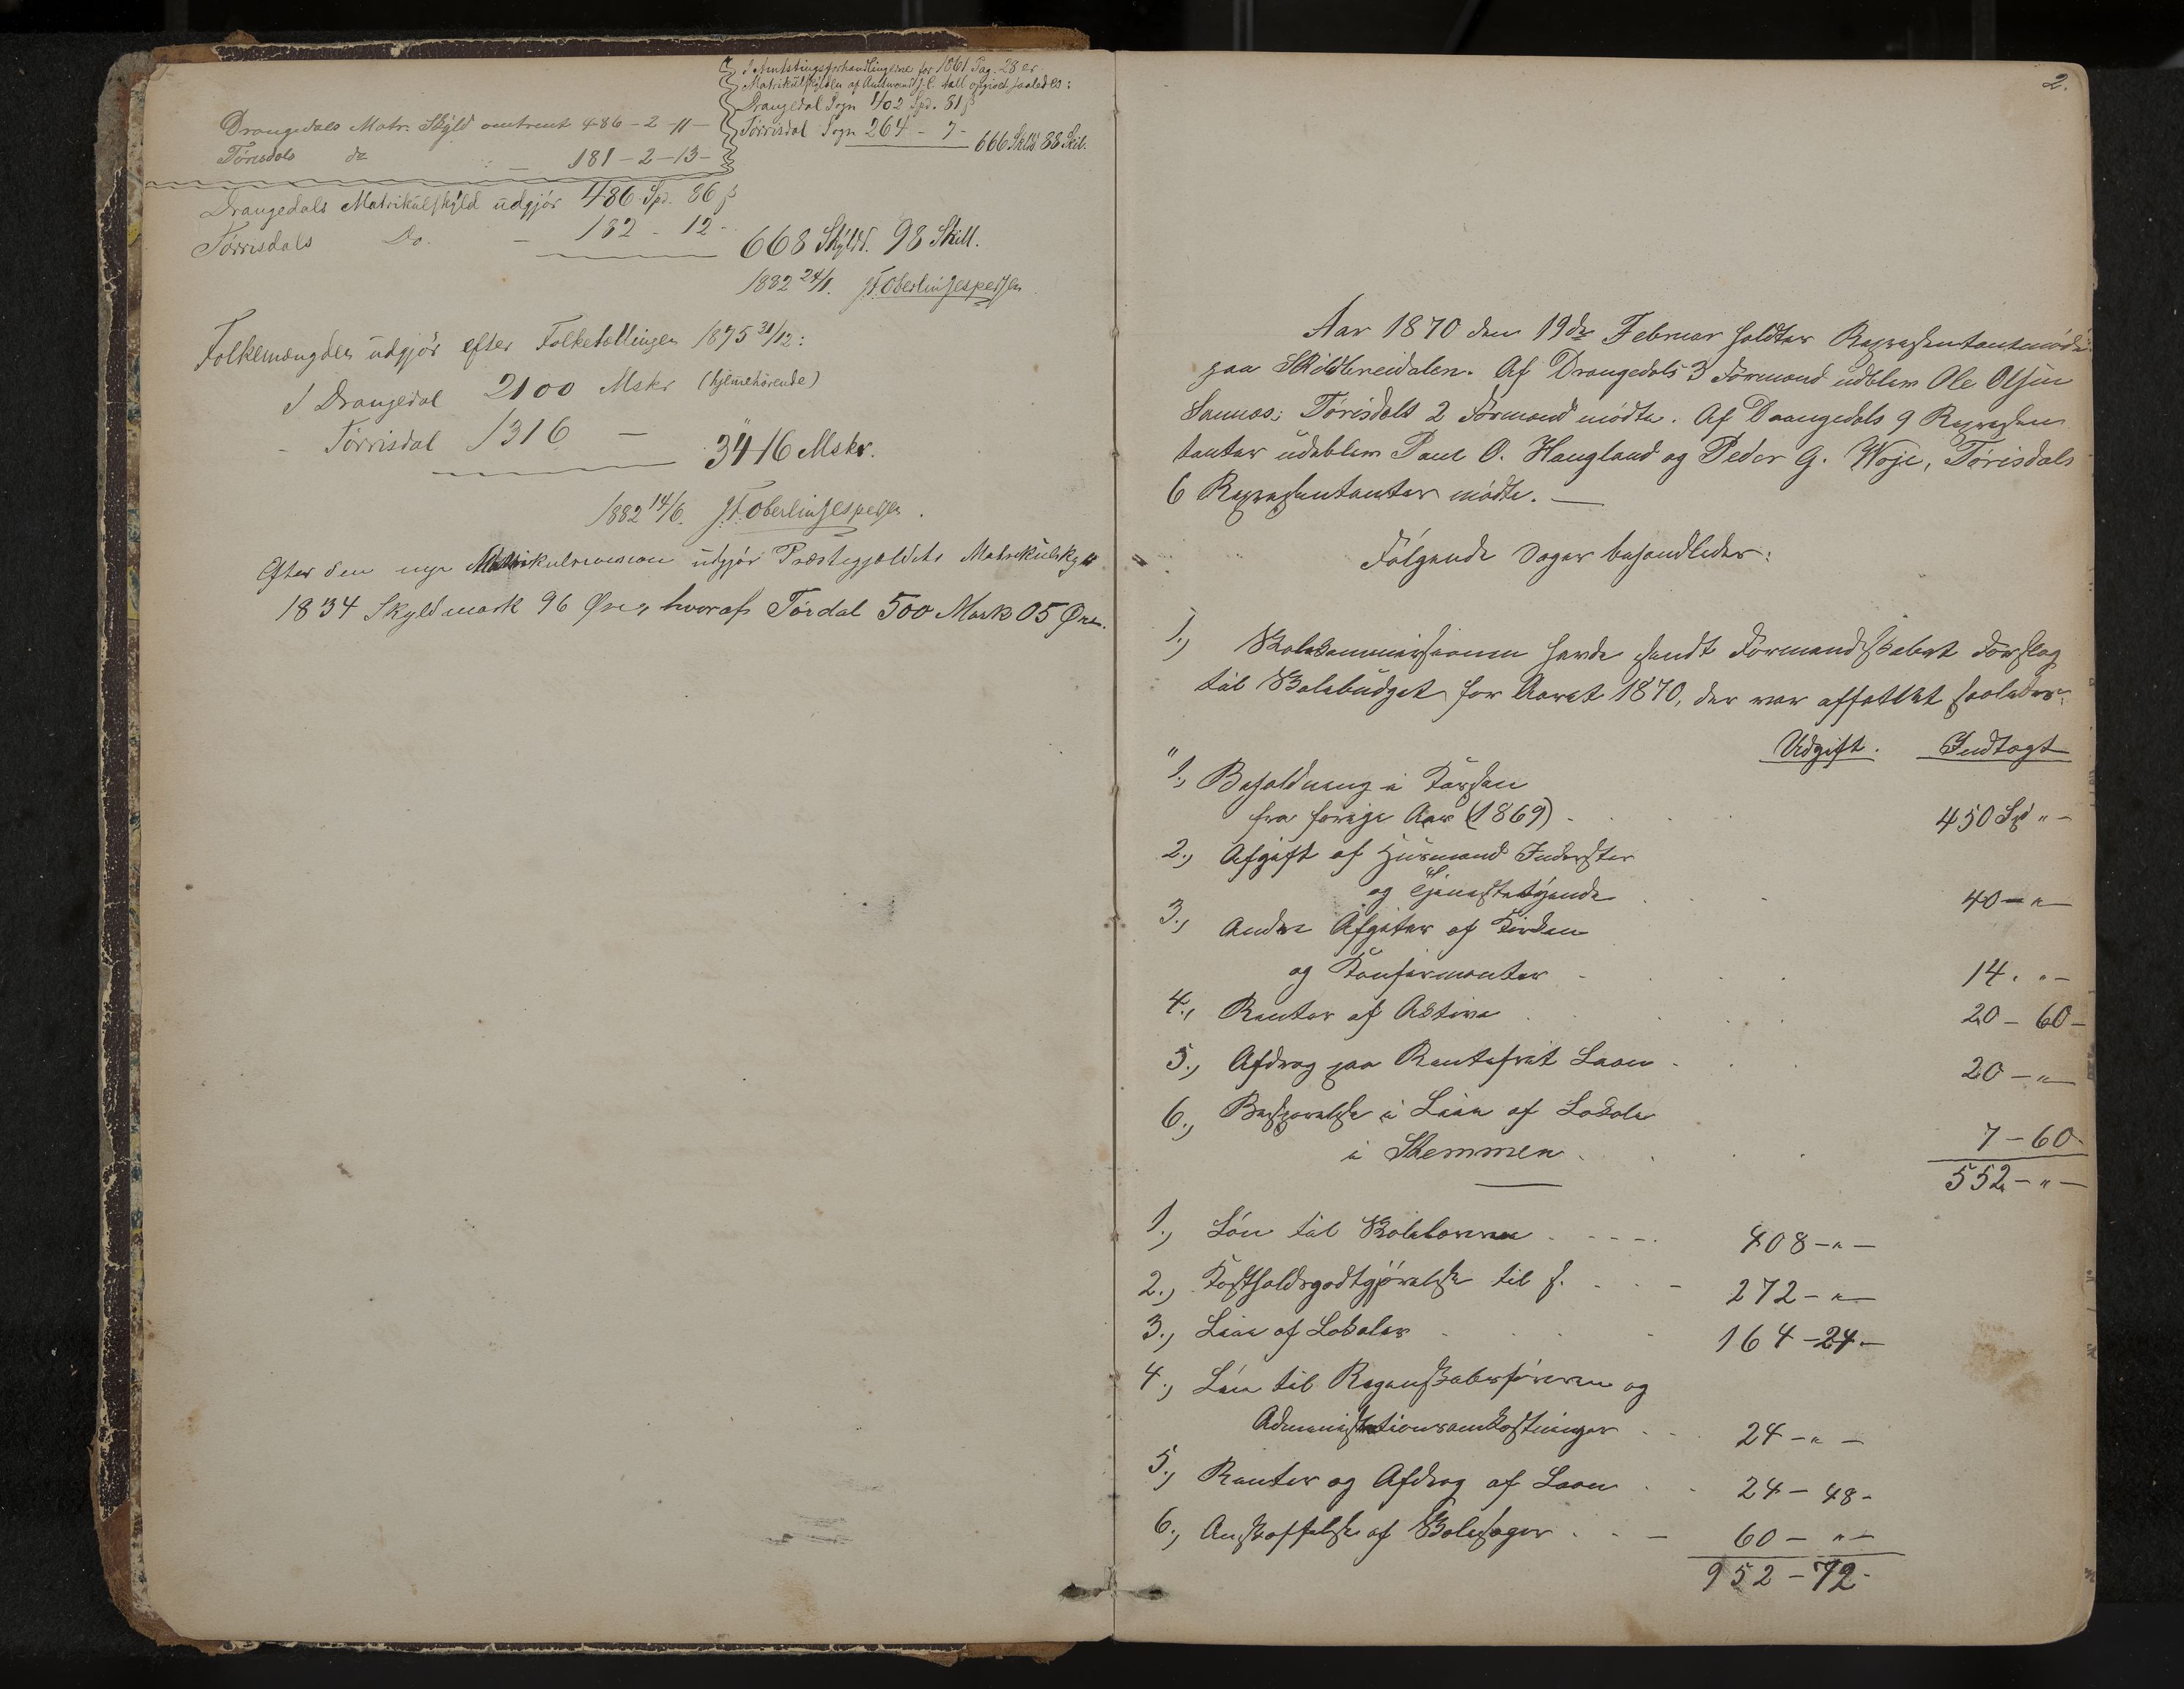 Drangedals Matr. Skÿld omtrent 486-2-11-
Törisdals do - 181-2-13-
I Amtstingsforhandlingerne for 1861 Pag. 28 er
Matrikülskÿlden af Amtmand
opgivet saaledes:
Drangedal Sogn 402 Spd. 81 ß
Törrisdal Sogn 264 - 7 -
666 Skÿld 88 Skil.
Drangedals Matrikülskÿld üdgjör 486 Spd. 86 ß
Törrisdals Do. - 182 - 12 -
668 Skÿldd. 98 Skill.
1882 24/1.
Folkemængden üdgjör efter Folketællingen 1875 31/12:
I Drangedal 2100 Mskr (hjemehörende)
- Törrisdal 1316 -
3416 Mskr.
1882 14/6.
Efter den nye Matrikulrevision üdgjör Præstegjældets Matrikülskyld
1834 Skyldmark 96 Øre, hvoraf Tördal 500 Mark 05 Øre.
2.
Aar 1870 den 19de Februar holdtes Repræsentantmöde
paa Skildbreidalen. Af Drangedals 3 Formænd udblev Ole Olsen
Sannæs; Törisdals 2 Formænd mödte. Af Drangedals 9 Repræsen
tanter üdeblev Paul O. Haugland og Peder G. Woje, Törisdals
6 Repræsentanter mödte. —
Fölgende Sager behandledes:
1.) Skolekommissionen havde sendt Formandskabet Forslag
til Skolebüdget for Aaret 1870, der var affattet saaledes:
Udgift. Indtægt
"1., Beholdning i Kassen
fra forrige Aar (1869) . . . 450 Sp " -
2., Afgift af Hüsmænd Inderster
og Tjenestetÿende . . . 40 - " -
3., Andre Afgifter af Kirken
og Konfirmanter . . . 14 . " -
4., Renter af Aktiva . . . 20 - 60 -
5., Afdrag paa Rentefrit Laan . . . 20 - " -
6., Besparelse i Leie af Lokale
i Stemmen . . . 7 - 60 -
552 - " -
1., Lön til Skolelærerne . . . 408 - " -
2., Kostholdsgodtgjörelse til s. . . - 272 - " -
3., Leie af Lokaler . . . - 164 - 24 -
4., Lön til Regnskabsföreren og
Administrationsomkostninger . . . 24 - " -
5., Renter og Afdrag af Laan . . 24 - 48 -
6., Anskaffelse af Skolesager . . - 60 - " -
952 - 72 -